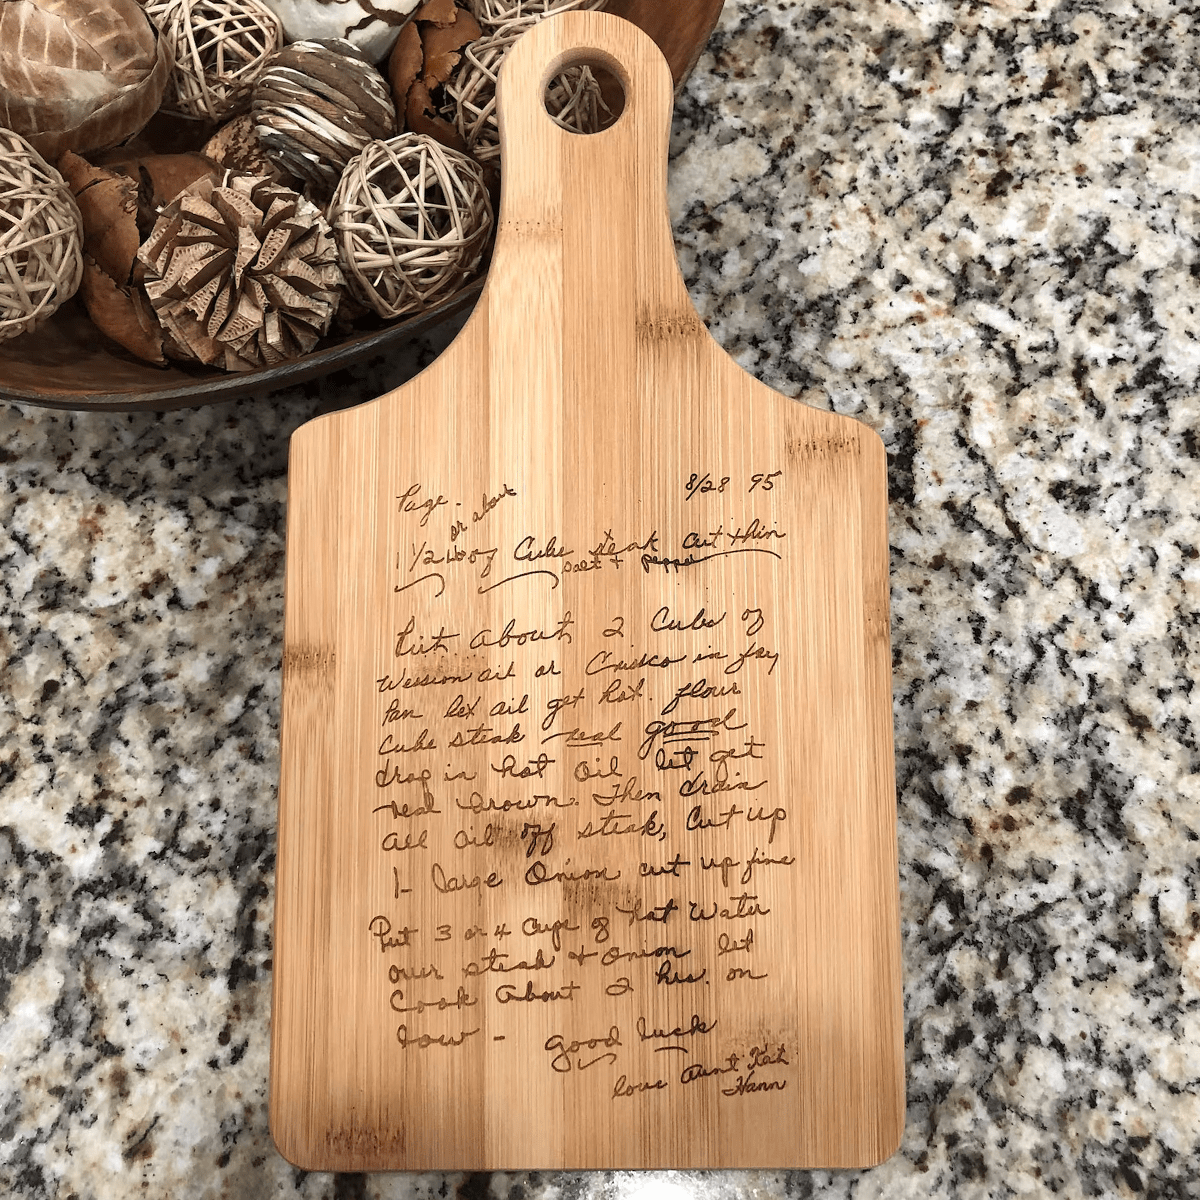 Page. 8/28 95
or about
1 1/2 lb of Cube steak cut thin
salt + pepper
Put about 2 Cubs of
Wession oil or Crisco in fry
Pan let oil get hot. flour
Cube steak real good
drop in hot oil let get
real brown. Then drain
all oil off steak, Cut up
1- large Onion cut up fine
Put 3 or 4 Cups of hot Water
over steak + onion let
Cook about 2 hrs. on
low - good luck
love Aunt Kat
Hann